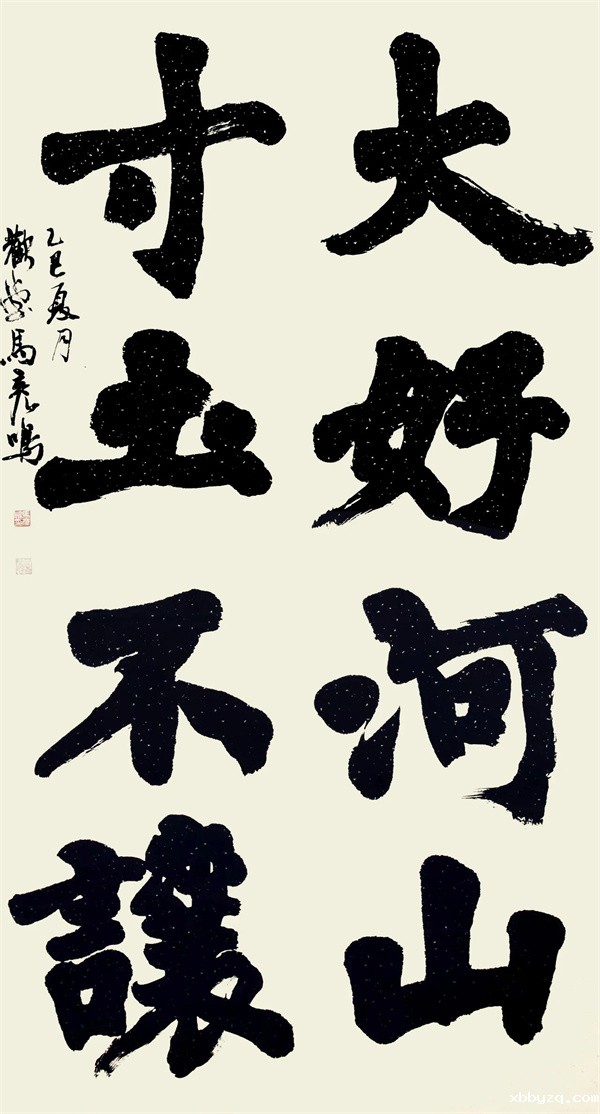 大好河山
寸土不讓
乙巳夏月
馬彥鳴
xbbyzq.com